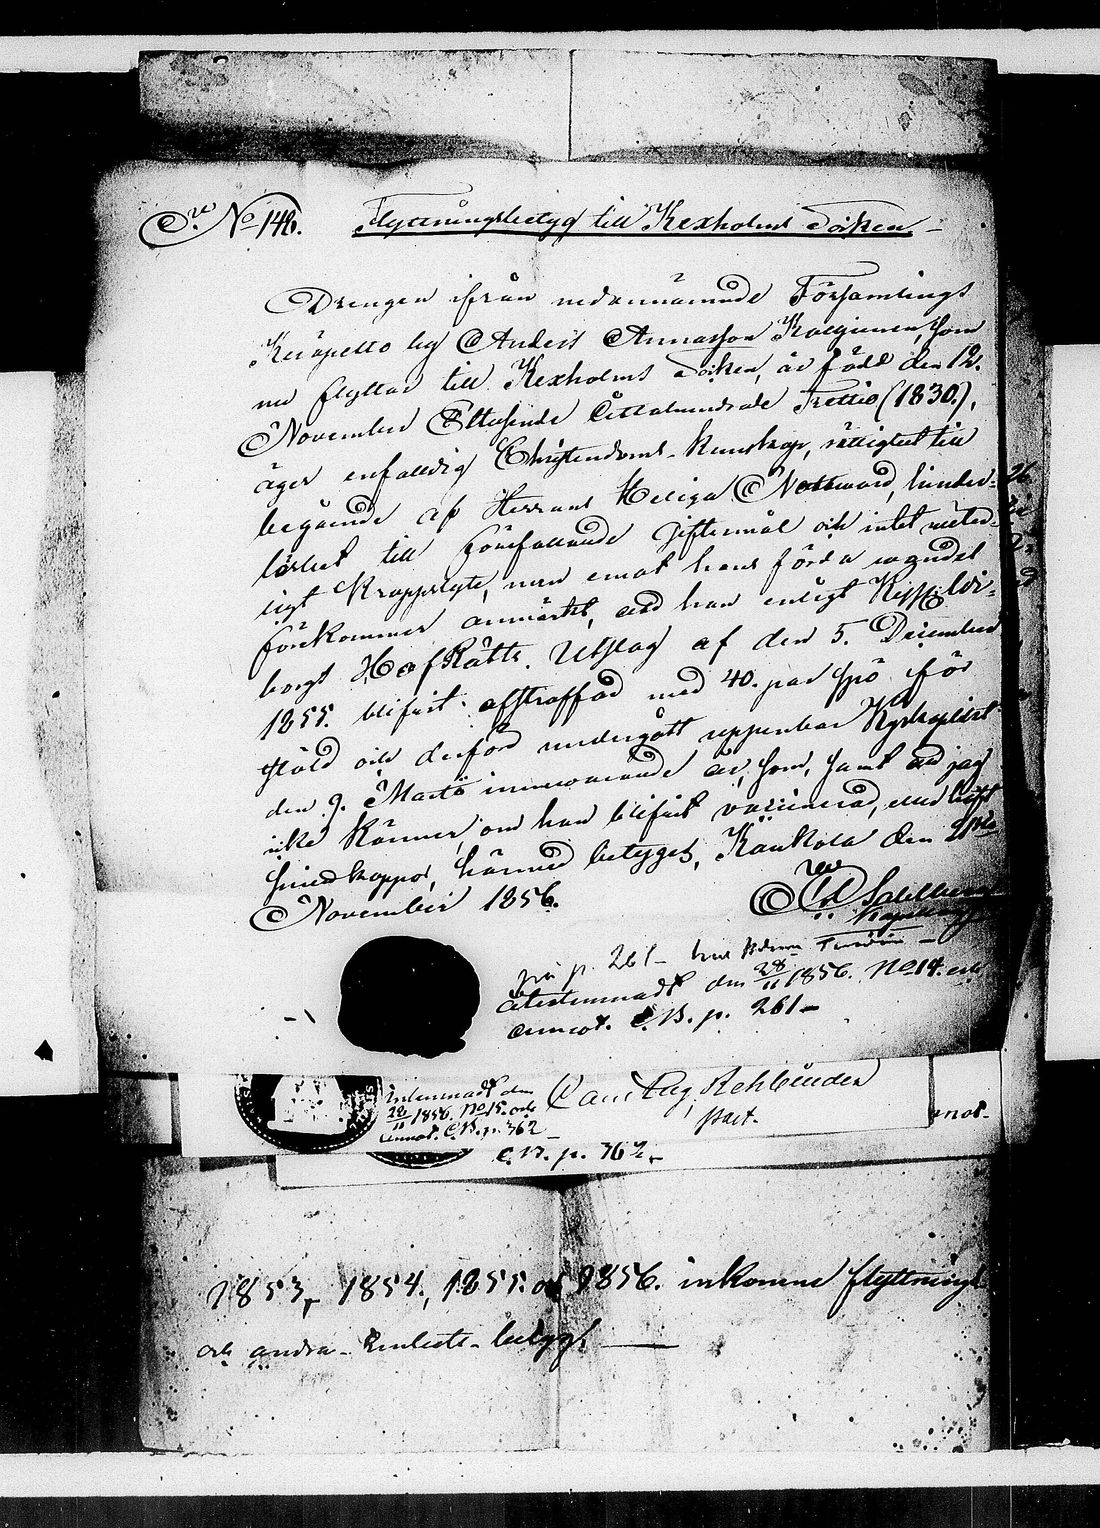 No 148. Flyttningsbetyg till Kexholms Socken
Drengen ifrån nedannämnde Församlings
by Anders Annasson som
nu flyttar till Kexholms Socken, är född den 12.
November Ettusende Ottahundrade Trettio (1830.),
äger enfaldig Christendoms-kunskap, rättighet till
begående af Herrans Heliga Nattward, hinder-
löshet till förefallande giftermål och intet
Kroppslyte, men emot hans förda wandel
förekommer anmärkt, att han enligt Kejs. Wi-
borgs HofRätts Utslag af den 5. December
1855. blifvit afstraffad med 40. par spö för
stöld och derför undergått uppenbar Kyrkoplikt
den 9. Martii innewarande år, som, samt att jag
icke känner, om han blifvit vaccinerad, eller haft
Smedkoppor, härmed betyges, Kaukola den
November 1856.
på p. 261
den 28/11 1856. No 14. och
annot. C.B. p. 261
Inlemnadt den
28/11 1856. No 15. och
annot. C.B. p. 362
Rehbinder
Past.
annot.
C.B. p. 362
1853, 1854, 1855. och 1856. inkomne flyttnings
och andra betyg